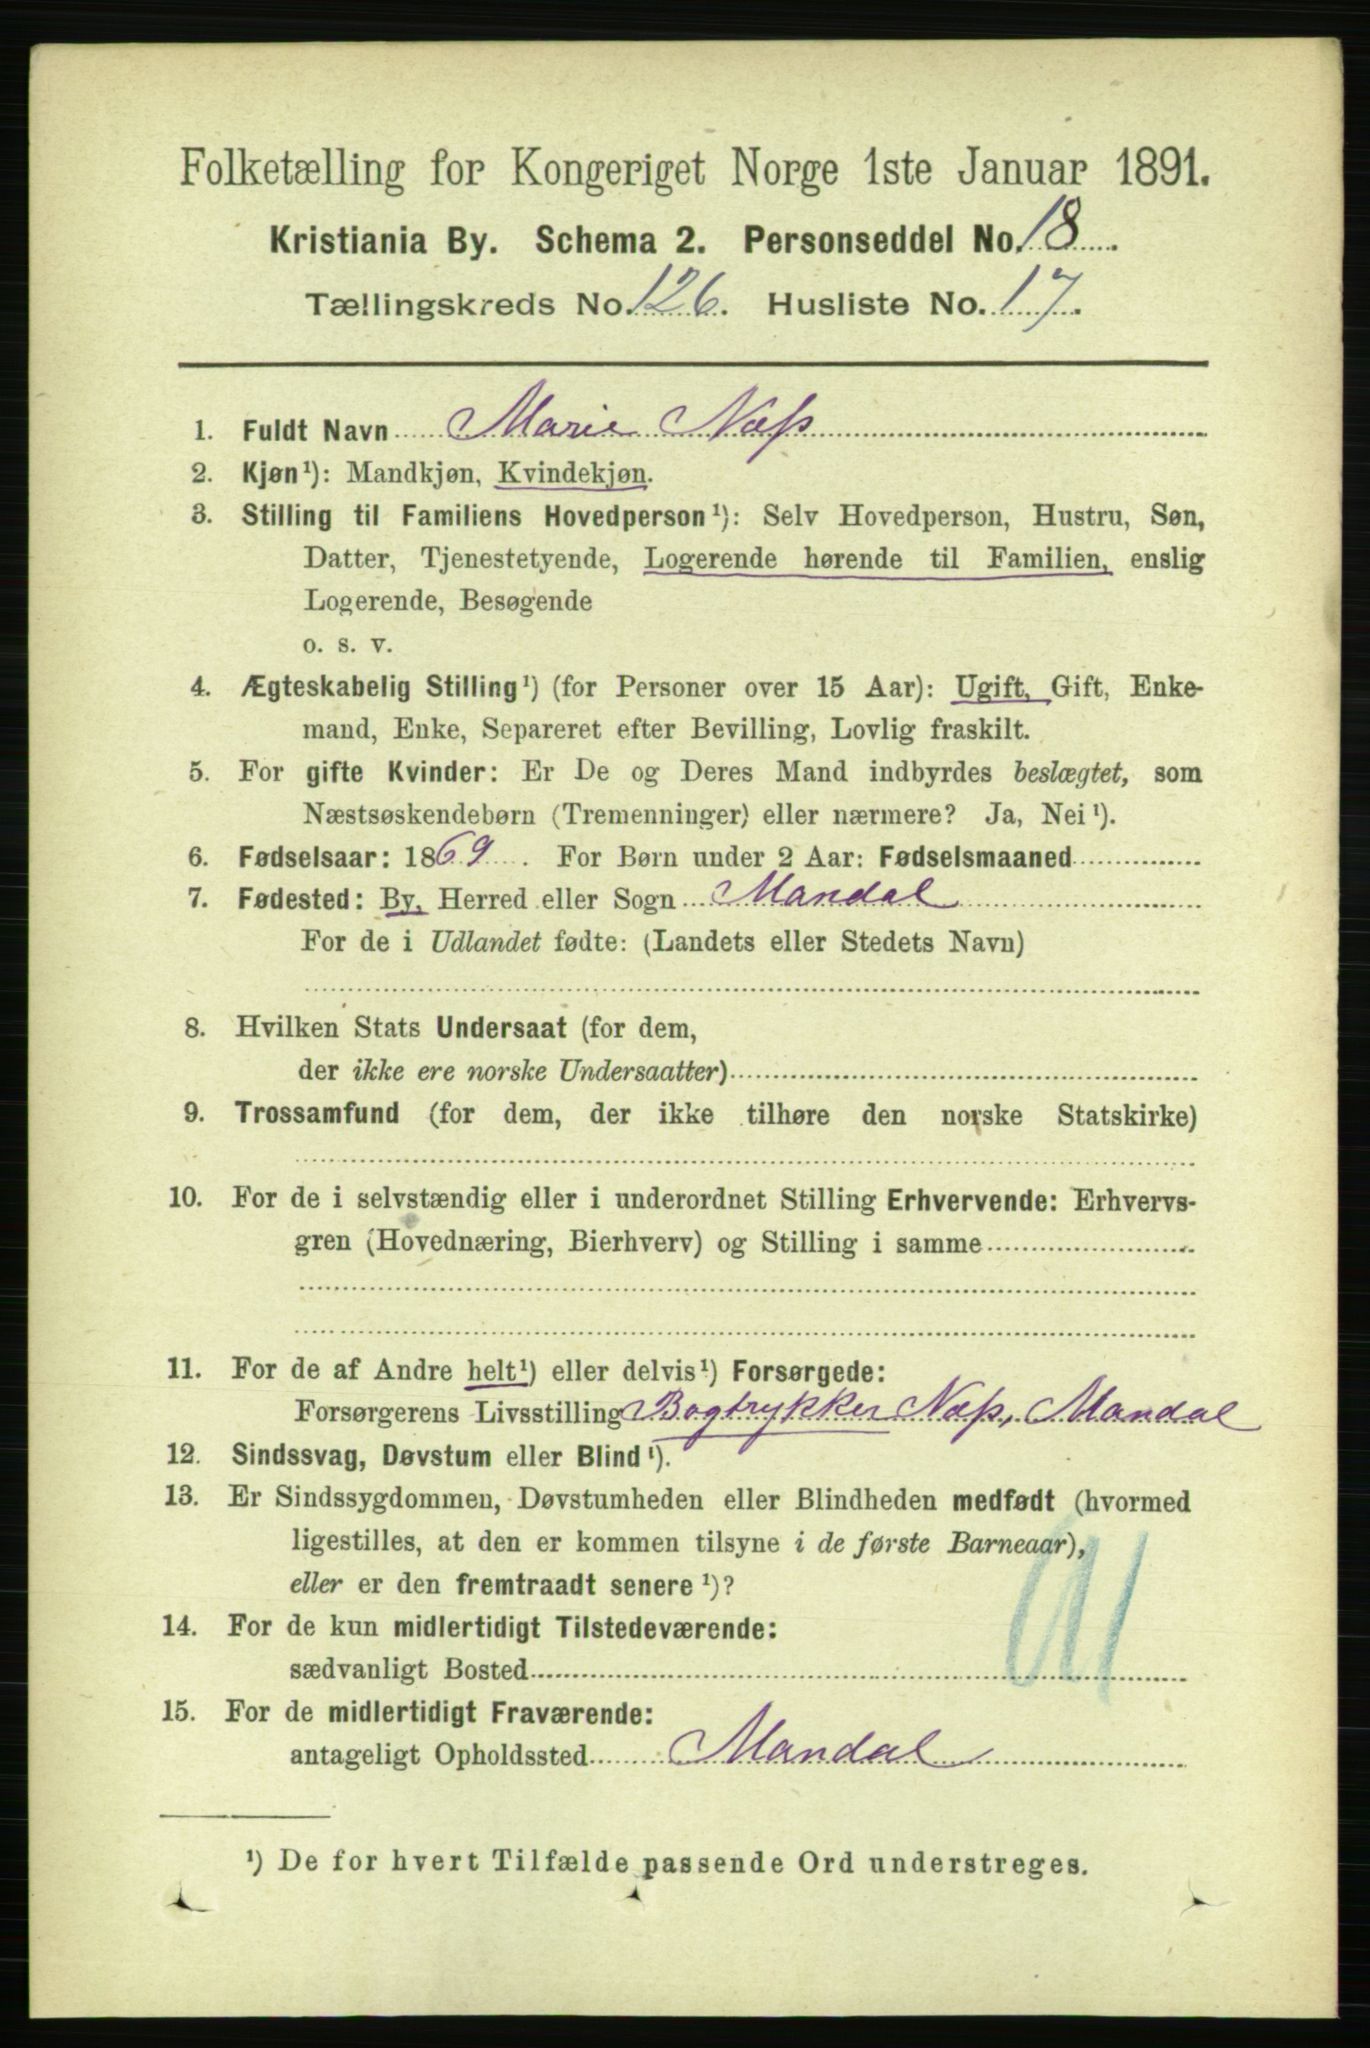 Folketælling for Kongeriget Norge 1ste Januar 1891.
Kristiania By. Schema 2. Personseddel No. 18.
Tællingskreds No. 126. Husliste No. 17.
1. Fuldt Navn Marie Næss
2. Kjøn¹): Mandkjøn, Kvindekjøn.
3. Stilling til Familiens Hovedperson¹): Selv Hovedperson, Hustru, Søn,
Datter, Tjenestetyende, Logerende hørende til Familien, enslig
Logerende, Besøgende
o. s. v.
4. Ægteskabelig Stilling¹) (for Personer over 15 Aar): Ugift, Gift, Enke-
mand, Enke, Separeret efter Bevilling, Lovlig fraskilt.
5. For gifte Kvinder: Er De og Deres Mand indbyrdes beslægtet, som
Næstsøskendebørn (Tremenninger) eller nærmere? Ja, Nei¹).
6. Fødselsaar: 1869. For Børn under 2 Aar: Fødselsmaaned
7. Fødested: By, Herred eller Sogn Mandal
For de i Udlandet fødte: (Landets eller Stedets Navn)
8. Hvilken Stats Undersaat (for dem,
der ikke ere norske Undersaatter)
9. Trossamfund (for dem, der ikke tilhøre den norske Statskirke)
10. For de i selvstændig eller i underordnet Stilling Erhvervende: Erhvervs-
gren (Hovednæring, Bierhverv) og Stilling i samme
11. For de af Andre helt¹) eller delvis¹) Forsørgede:
Forsørgerens Livsstilling Bogtrykker Næss, Mandal
12. Sindssvag, Døvstum eller Blind¹).
13. Er Sindssygdommen, Døvstumheden eller Blindheden medfødt (hvormed
ligestilles, at den er kommen tilsyne i de første Barneaar),
eller er den fremtraadt senere¹)?
14. For de kun midlertidigt Tilstedeværende:
sædvanligt Bosted
15. For de midlertidigt Fraværende:
antageligt Opholdssted Mandal
¹) De for hvert Tilfælde passende Ord understreges.